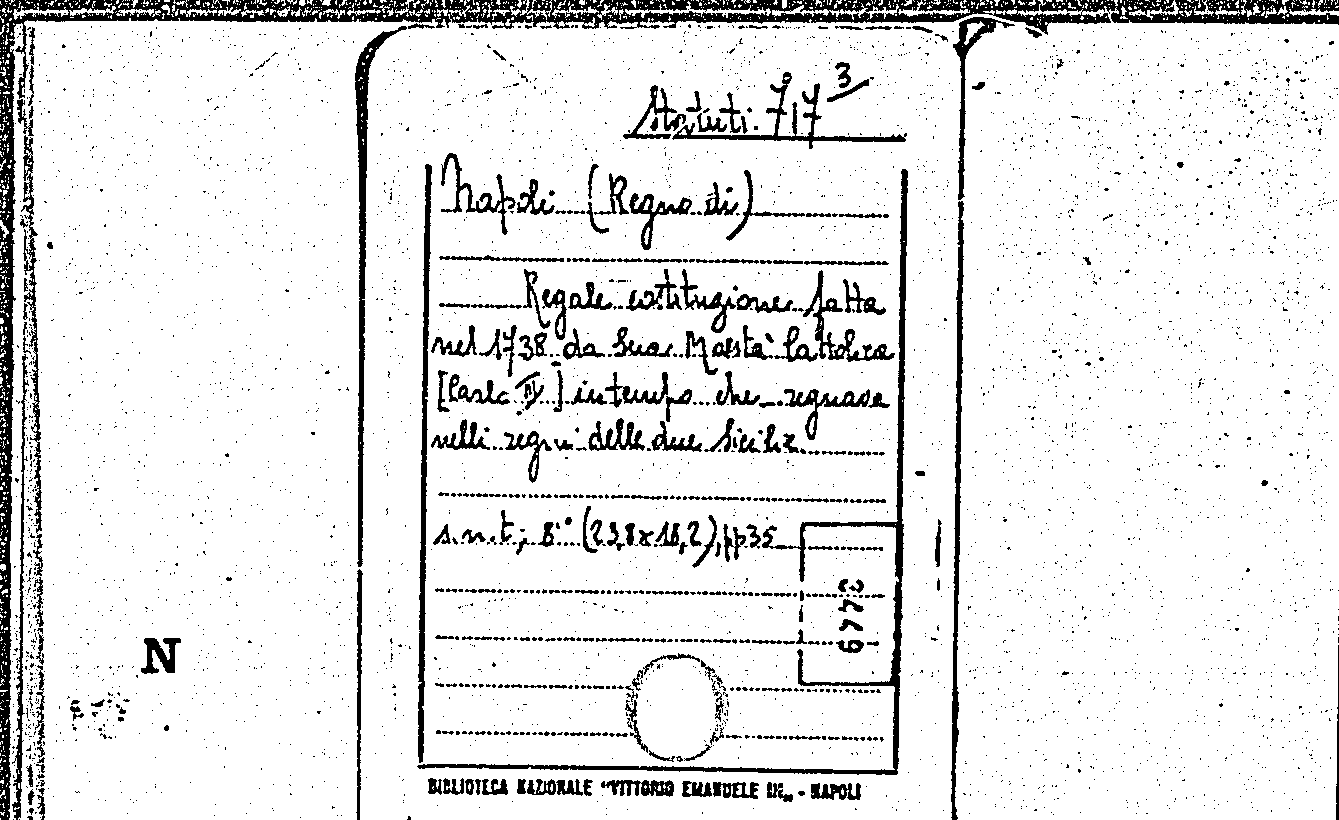 Statuti. 717 3
Napoli (Regno di)
Regale costituzione fatta
nel 1738 da Sua Maestà Cattolica
[Carlo III] in tempo che regnava
nelli regni delle due Sicilie.
s.n.t., 8° (23,8x18,2), pp 35
3779
N
BIBLIOTECA NAZIONALE "VITTORIO EMANUELE III„ - NAPOLI